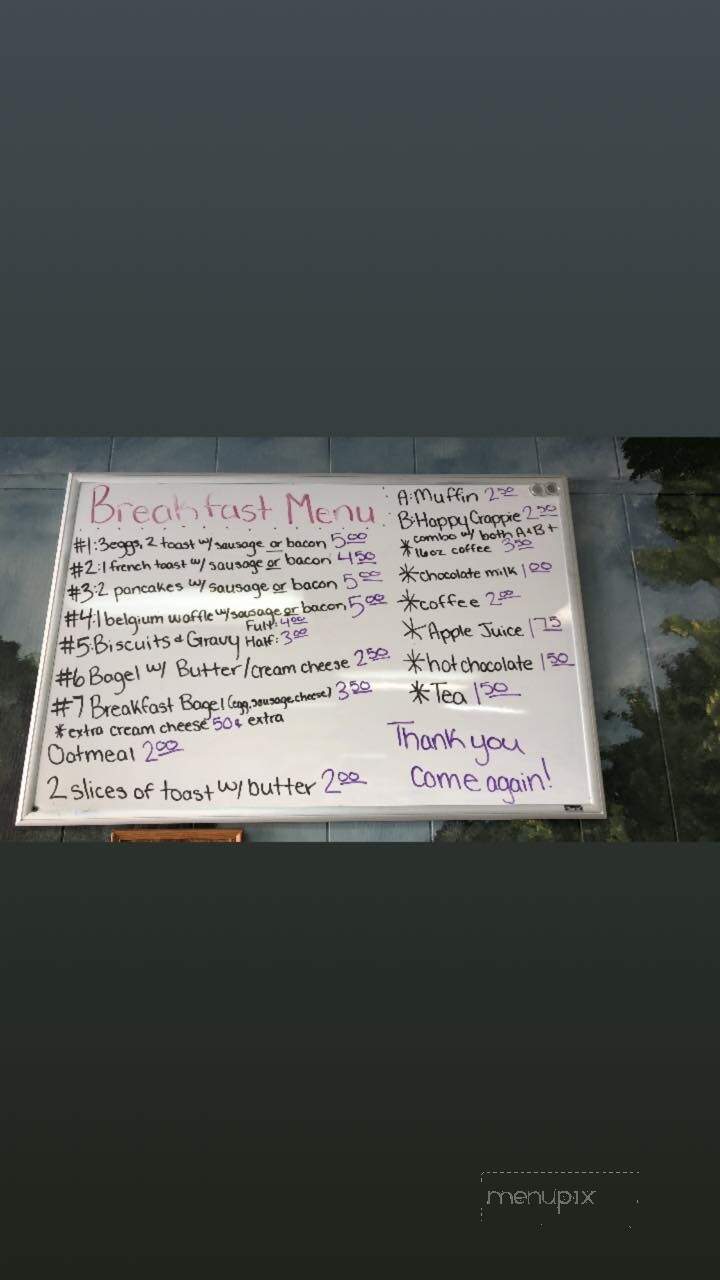 Breakfast Menu
#1: 3eggs, 2 toast w/ sausage or bacon 5.00
#2: 1 french toast w/ sausage or bacon 4.50
#3: 2 pancakes w/ sausage or bacon 5.00
#4: 1 belgium waffle w/ sausage or bacon 5.00
#5: Biscuits & Gravy Full: 4.00
Half: 3.00
#6 Bagel w/ Butter/cream cheese 2.50
#7 Breakfast Bagel (egg, sausage, cheese) 3.50
*extra cream cheese 50¢ extra
Oatmeal 2.00
2 slices of toast w/ butter 2.00
A: Muffin 2.50
B: Happy Crappie 2.50
* combo w/ both A+B +
16oz coffee 3.50
*chocolate milk 1.00
*coffee 2.00
*Apple Juice 1.75
*hot chocolate 1.50
*Tea 1.50
Thank you
come again!
menupix